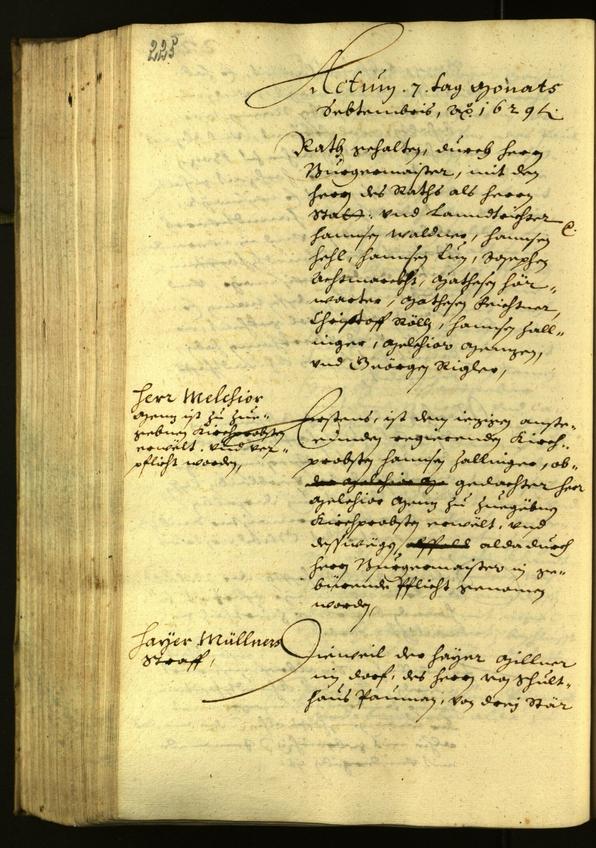 225
Actum .7. tag Monats
Septembris, Ao 1629 &.
Rath gehalten, durch herrn
Burgermaister, mit den
herrn des Raths als herrn
Statt. und Lanndtrichter
hannsen Waldner, hannsen
hehl, hannsen Lun, Josephen
Achtmarckht, Mathesen här-
warter, Mathesen Feichtner,
Christoff Röll, hannsen Zall-
inger, Melchior Menzen,
und Geörgen Rigler,
herr Melchior
Menz ist zu Zue-
gebnen Kirchprobsten
erwelt, und ver-
pflicht worden,
Erstens, ist dem iezigen anste-
eunden regierenden Kirch-
probsten hannsen Zallinger, ob-
gedachter herr
Melchior Menz zu Zuegebnen
Kirchprobsten erwelt, und
desswegen alda durch
herrn Burgermaister in ge-
bürende Pflicht genomen
worden,
hayer Müllners
Straff,
Dieweil der hayer Millner
im dorf, des herrn von Schult-
haus Pauman, von drey Stär